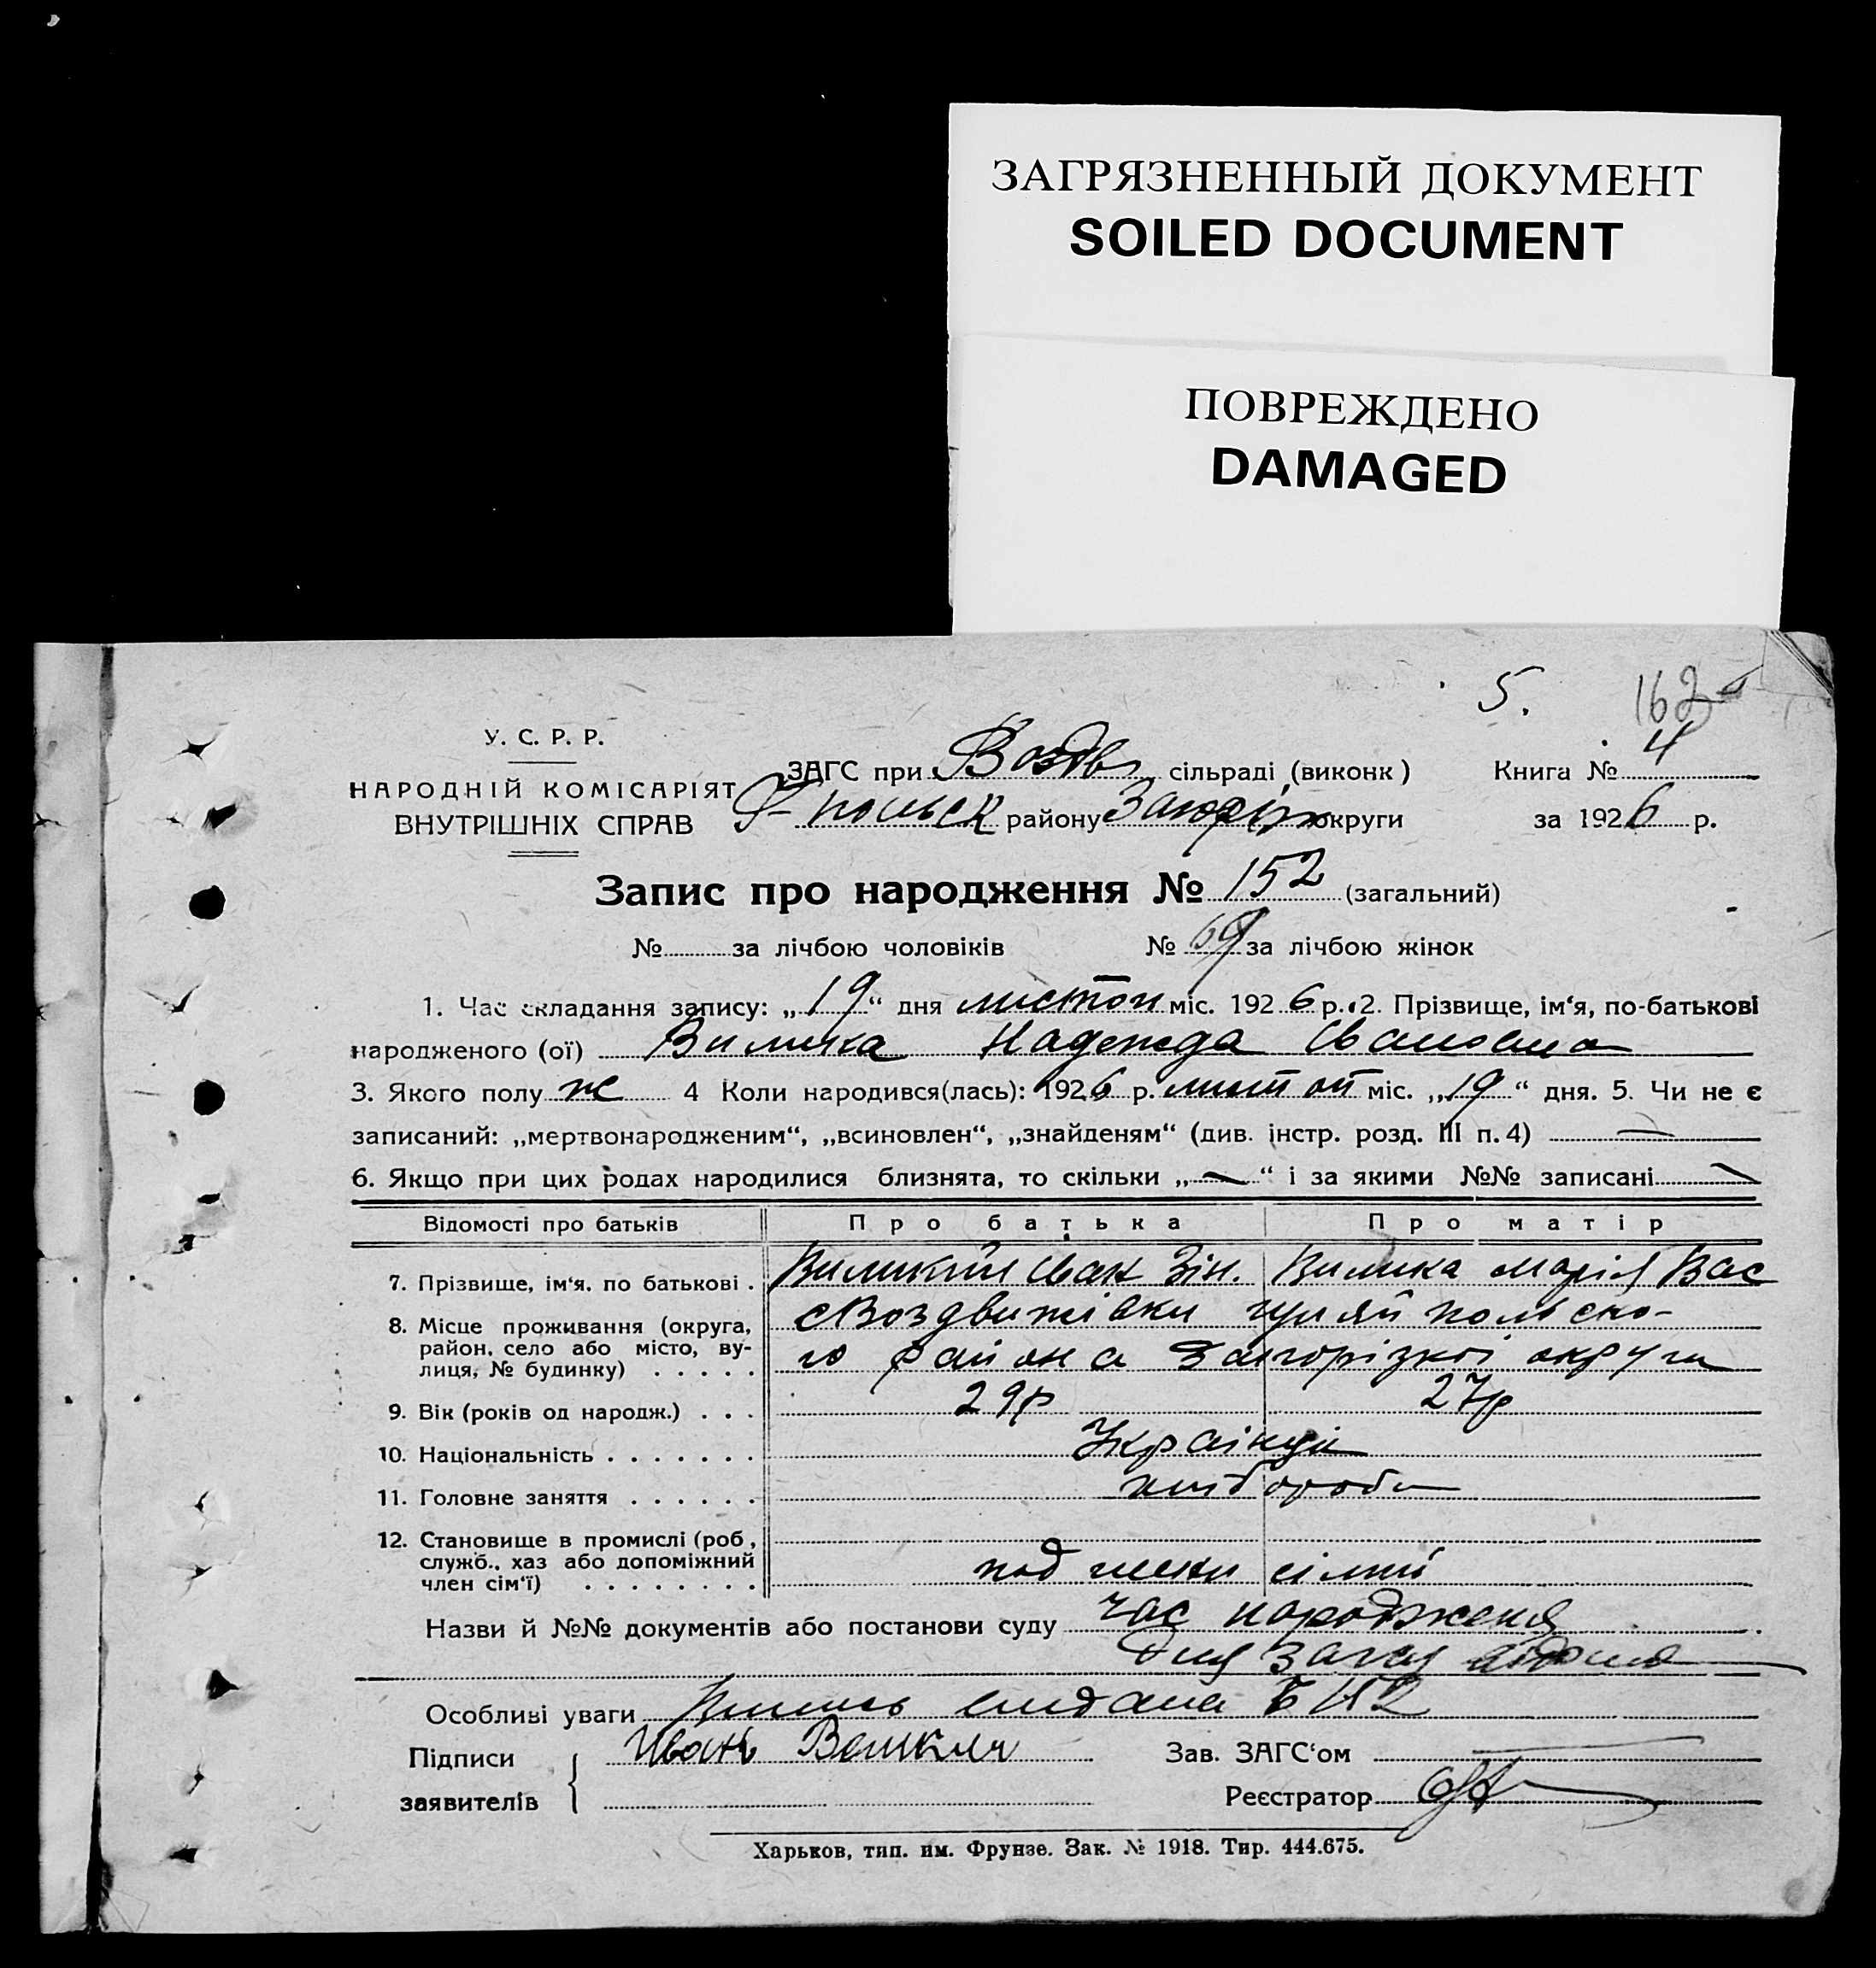 ЗАГРЯЗНЕННЫЙ ДОКУМЕНТ
SOILED DOCUMENT
ПОВРЕЖДЕНО
DAMAGED
5. 162
У. С. Р. Р.
НАРОДНІЙ КОМІСАРІЯТ
ВНУТРІШНІХ СПРАВ
ЗАГС при Воздв сільраді (виконк) Книга № 4
Г-польск району Запоріз округи за 1926 р.
Запис про народження № 152 (загальний)
№ за лічбою чоловіків № 69 за лічбою жінок
1. Час складання запису: „19“ дня листоп міс. 1926 р. 2. Прізвище, ім‘я, по-батькові
народженого (ої) Вилика Надежда Ивановна
3. Якого полу ж 4 Коли народився(лась): 1926 р. листоп міс. „19“ дня. 5. Чи не є
записаний: „мертвонародженим“, „всиновлен“, „знайденям“ (див. інстр. розд. III п. 4) —
6. Якщо при цих родах народилися близнята, то скільки „—“ і за якими №№ записані —
Відомості про батьків Про батька Про матір
7. Прізвище, ім‘я, по батькові . Виликий Иван Зін. Вилика Марія Вас
8. Місце проживання (округа, район, село або місто, вулиця, № будинку) . . . . . с Воздвижівки Гуляйпольско-
го района Запорізкої округи
9. Вік (років од народж.) . . . 29р 27р
10. Національність . . . . . . . Українці
11. Головне заняття . . . . . . хлібороби
12. Становище в промислі (роб, служб., хаз або допоміжний член сім‘ї) . . . . . . . . члени сімї
Назви й №№ документів або постанови суду час народженя
для загсу
Особливі уваги Выпись видана 152
Підписи заявителів Иванъ Зав. ЗАГС‘ом —
Реєстратор
Харьков, тип. им. Фрунзе. Зак. № 1918. Тир. 444.675.